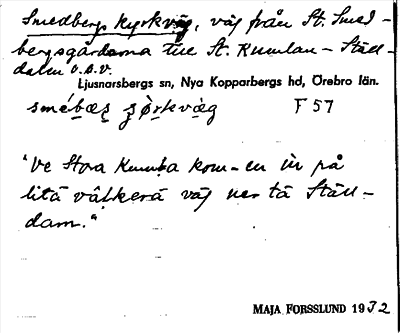 Smedbergs kyrkväg, väg från St. Smed-
bergsgårdarna till St. Kumlan - Ställ-
dalen o.s.v.
Ljusnarsbergs sn, Nya Kopparbergs hd, Örebro län.
smébæs̱ çø̀rkvæg F 57
"Ve Stora Kumla kom-en in på
litä väg ner tä Ställ-
dam."
MAJA FORSSLUND 1932